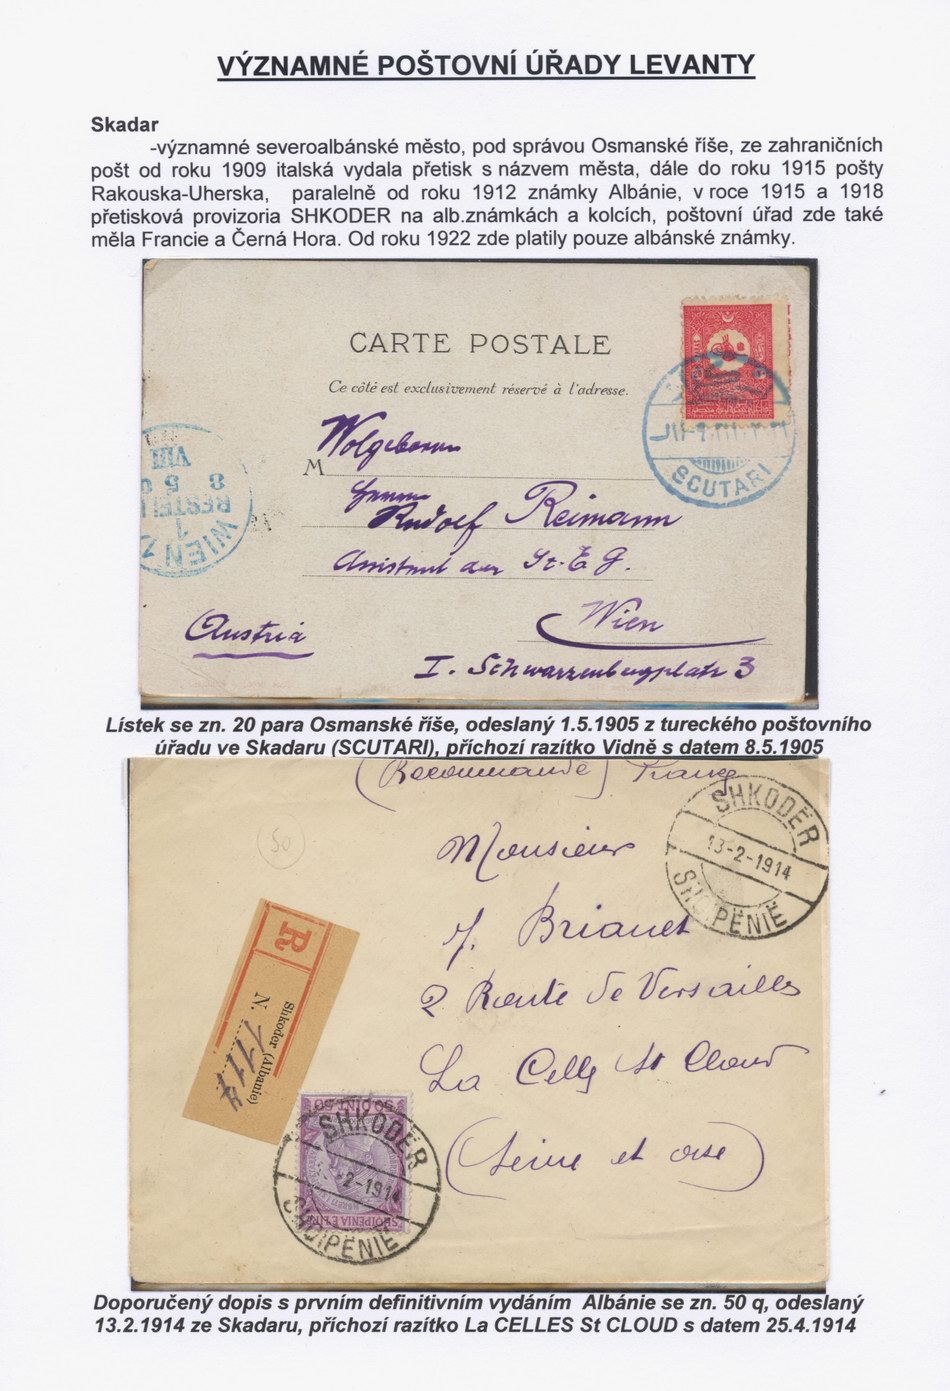 VÝZNAMNÉ POŠTOVNÍ ÚŘADY LEVANTY
Skadar
-významné severoalbánské město, pod správou Osmanské říše, ze zahraničních
pošt od roku 1909 italská vydala přetisk s názvem města, dále do roku 1915 pošty
Rakouska-Uherska, paralelně od roku 1912 známky Albánie, v roce 1915 a 1918
přetisková provizoria SHKODER na alb.známkách a kolcích, poštovní úřad zde také
měla Francie a Černá Hora. Od roku 1922 zde platily pouze albánské známky.
CARTE POSTALE
Ce côté est exclusivement réservé à l'adresse.
SCUTARI
M Wolgeboren
Herrn
Rudolf Reimann
Assistent der St. E. G.
Wien
I. Schwarzenbergplatz 3
Austria
WIEN
1
BESTELL
8 5
VIII
Lístek se zn. 20 para Osmanské říše, odeslaný 1.5.1905 z tureckého poštovního
úřadu ve Skadaru (SCUTARI), příchozí razítko Vídně s datem 8.5.1905
(Recommandé)
SHKODËR
13-2-1914
SHQIPËNIË
50
Monsieur
J. Brianet
2 Route de Versailles
La Celle St Cloud
(Seine et oise)
R
Shkoder (Albanie)
N. 1117
50 QINT 50
SHKODËR
-2-1914
SHQIPËNIË
SHQIPENIA E
Doporučený dopis s prvním definitivním vydáním Albánie se zn. 50 q, odeslaný
13.2.1914 ze Skadaru, příchozí razítko La CELLES St CLOUD s datem 25.4.1914